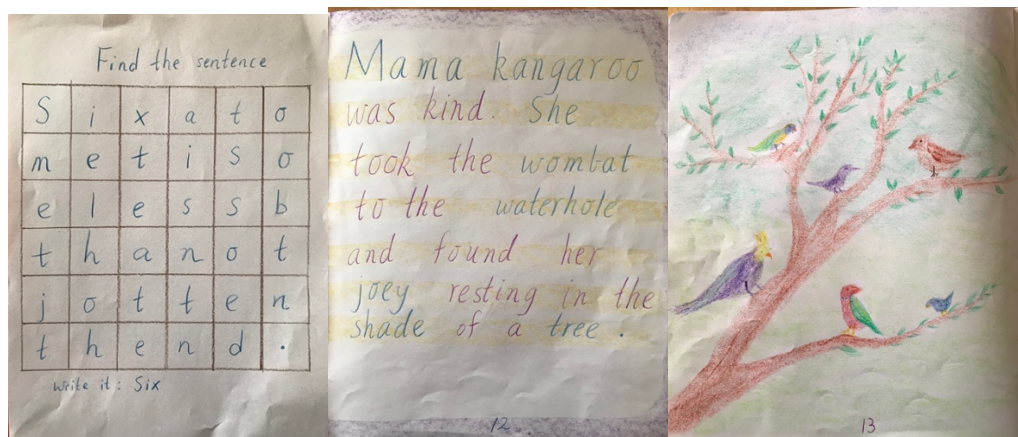 Find the sentence
S i x a t o
m e t i s o
e l e s s b
t h a n o t
j o t t e n
t h e n d .
write it: Six
Mama kangaroo
was kind. She
took the wombat
to the waterhole
and found her
joey resting in the
shade of a tree.
12
13